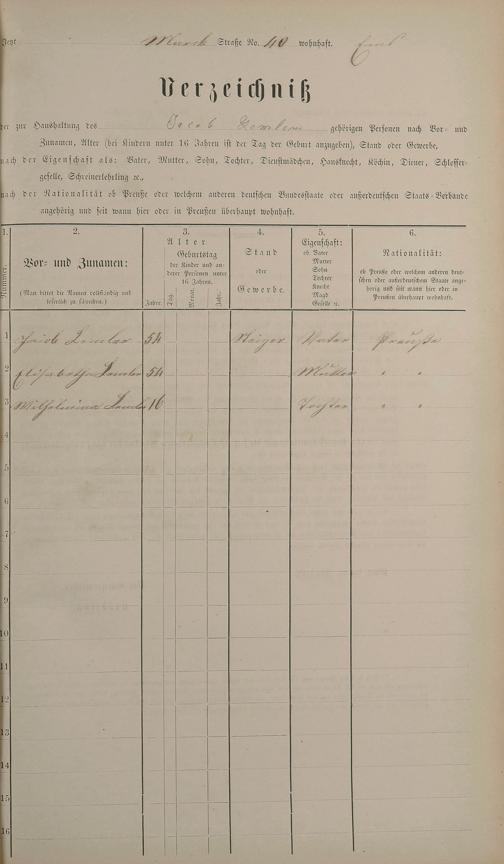 Jetzt Straße No. 48 wohnhaft.
Verzeichniß
der zur Haushaltung des Jacob gehörigen Personen nach Vor- und
Zunamen, Alter (bei Kindern unter 16 Jahren ist der Tag der Geburt anzugeben), Stand oder Gewerbe,
nach der Eigenschaft als: Vater, Mutter, Sohn, Tochter, Dienstmädchen, Hausknecht, Köchin, Diener, Schlosser-
geselle, Schreinerlehrling ꝛc.,
nach der Nationalität ob Preuße oder welchem anderen deutschen Bundesstaate oder außerdeutschen Staats-Verbande
angehörig und seit wann hier oder in Preußen überhaupt wohnhaft.
1. 2. 3. 4. 5. 6.
Nummer.
Vor- und Zunamen:
(Man bittet die Namen vollständig und
leserlich zu schreiben.)
Alter
Geburtstag
der Kinder und an-
derer Personen unter
16 Jahren.
Jahre. Tag. Monat. Jahr.
Stand
oder
Gewerbe.
Eigenschaft:
ob Vater
Mutter
Sohn
Tochter
Knecht
Magd
Geselle ꝛc.
Nationalität:
ob Preuße oder welchem anderen deut-
schen oder außerdeutschen Staate ange-
hörig und seit wann hier oder in
Preußen überhaupt wohnhaft.
1 54 Vater Preuße
2 Elisabetha 54 Mutter " "
3 Wilhelmina 16 Tochter " "
4
5
6
7
8
9
10
11
12
13
14
15
16